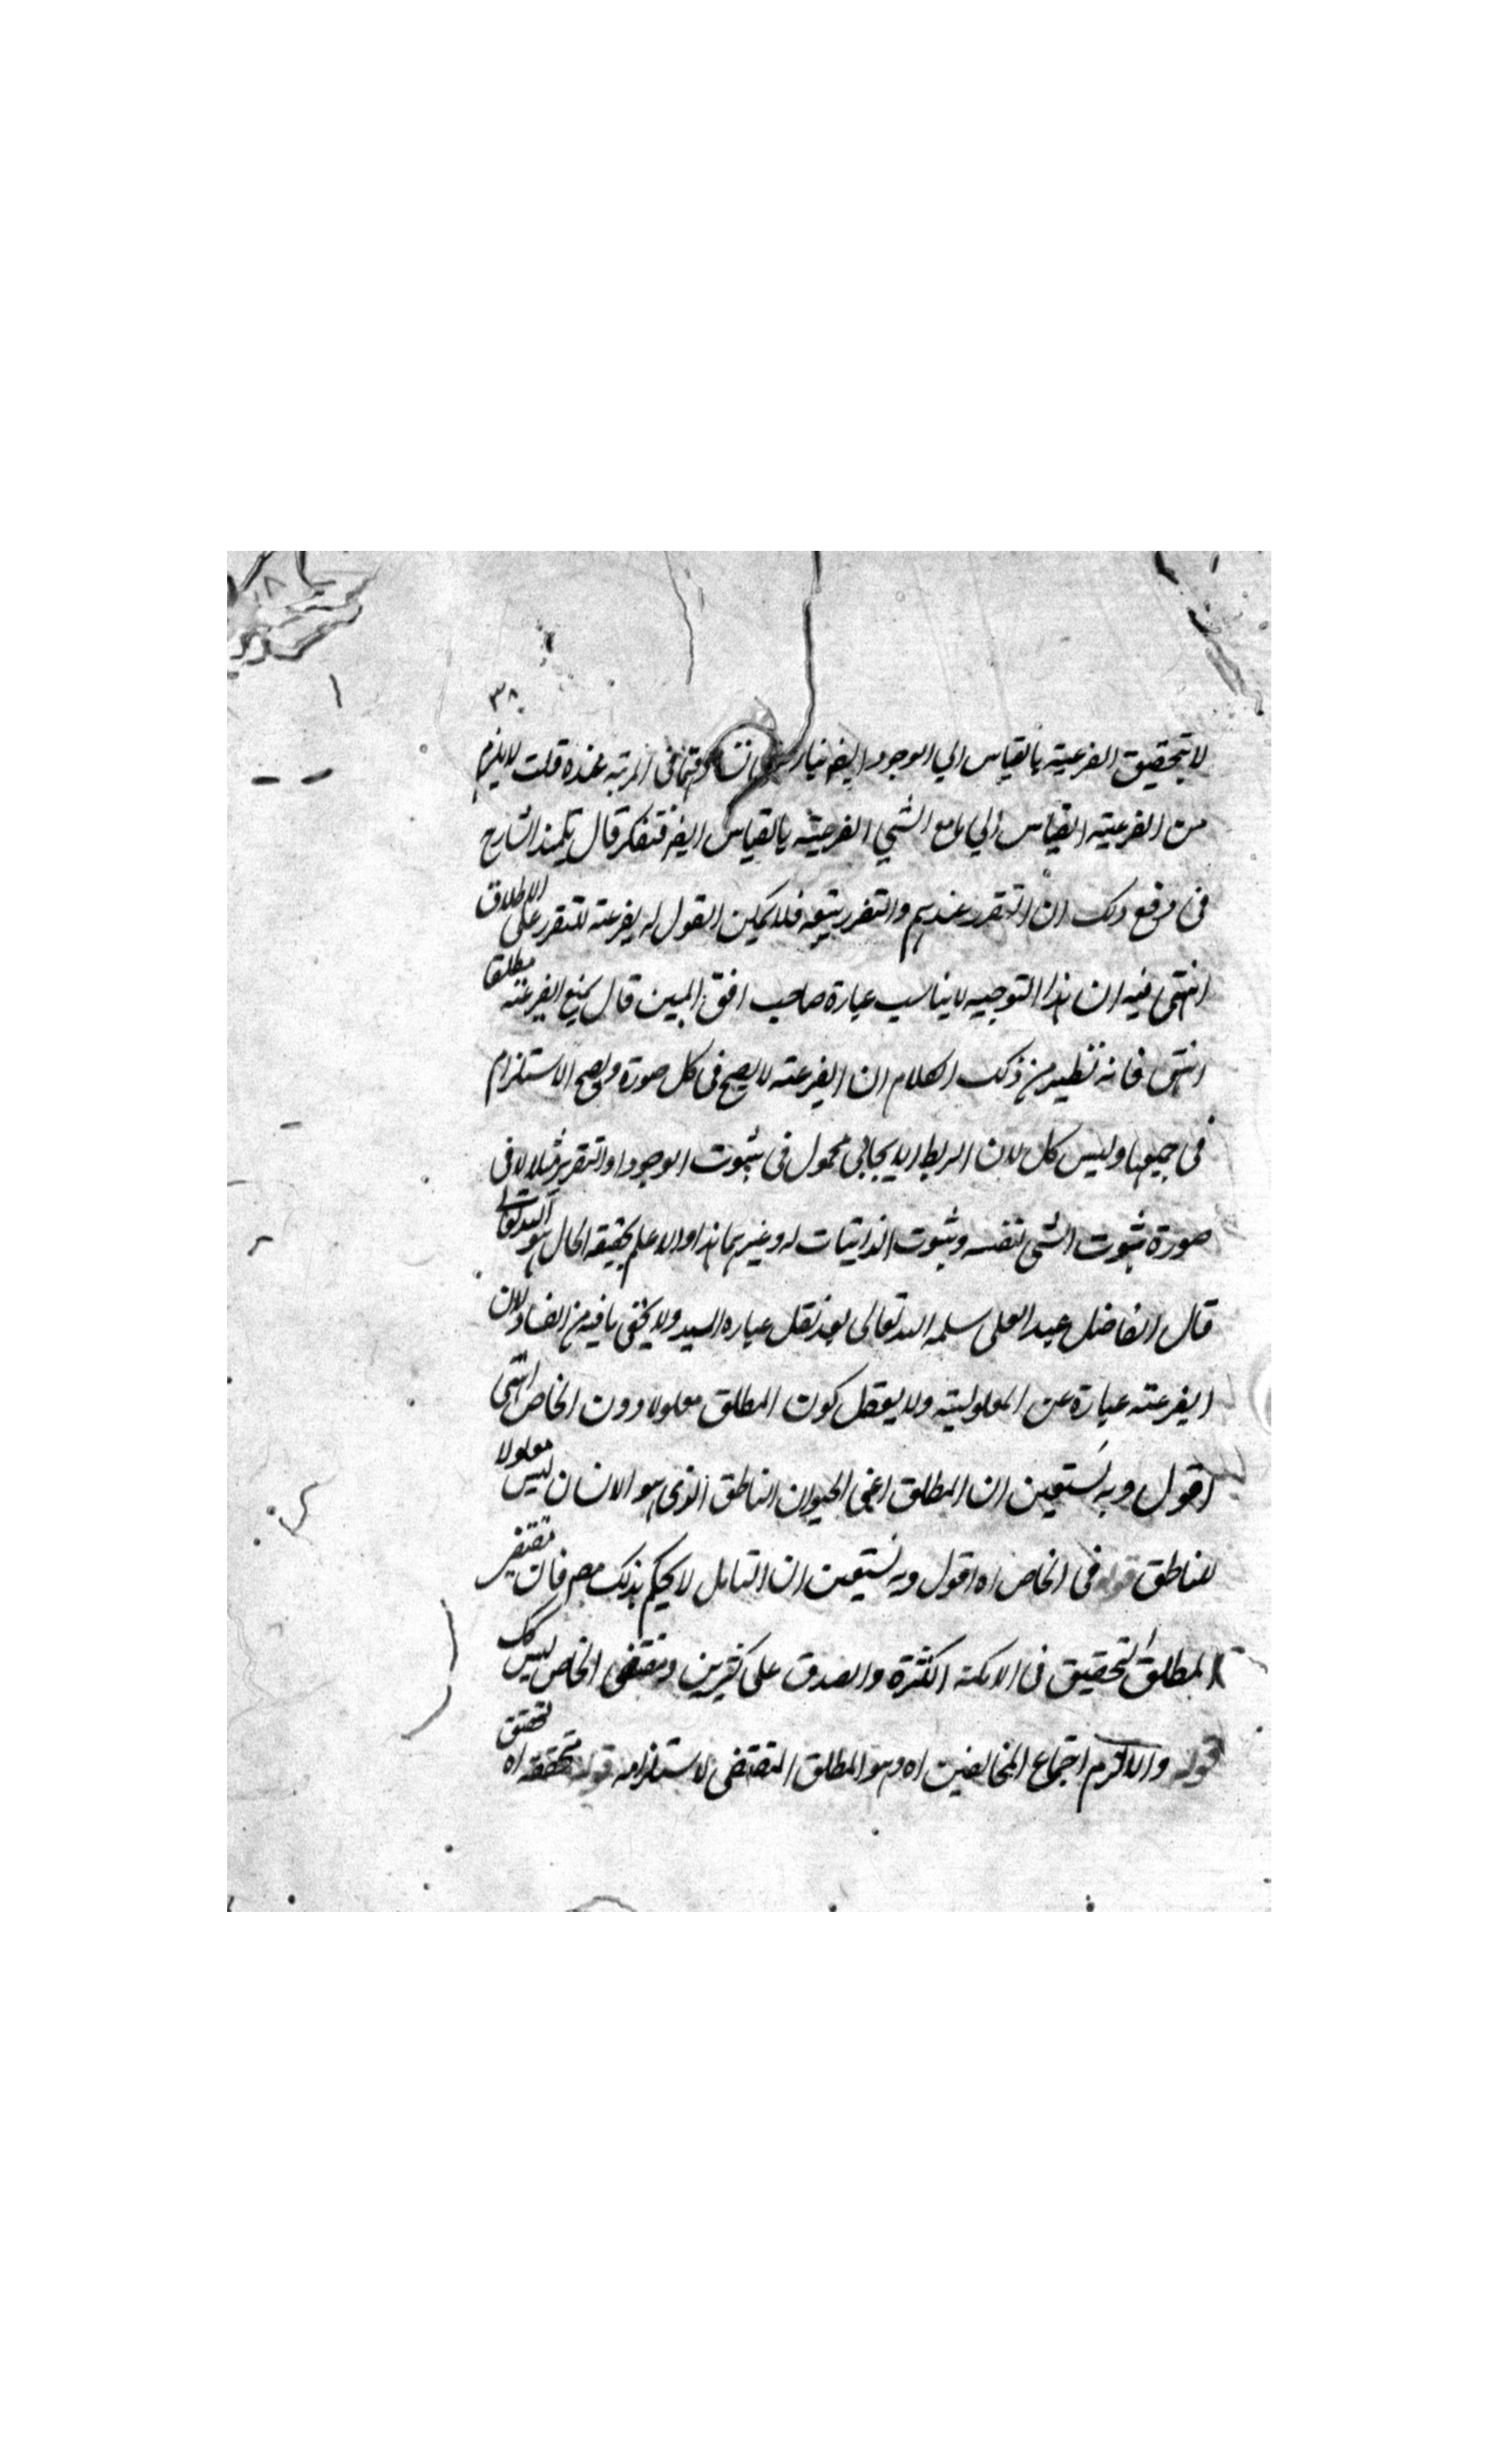 ٣٨
لا يتحقق الفرعية بالقياس الي الوجود ايضا في المرتبة عنده قلت لا يلزم
من الفرعية القياس الي ما مع الشي الفرعية بالقياس ايضا فتفكر قال تلميذ الشارح
في رفع ذلك ان التقرر عندهم والتقرر بتبعه فلا يمكن القول له بفرعته للتقرر على الاطلاق
انتهى فيه ان هذا التوجيه لا يناسب عبارة صاحب افق المبين قال بمنع الفرعته مطلقا
انتهى فانه تظهر من ذلك الكلام ان الفرعته لا يصح في كل صورة ويصح الاستلزام
في جميعها وليس كل لان الربط الايجابي محمول في ثبوت الوجود او التقرير مثلا لا في
صورة ثبوت الشي لنفسه وثبوت الذاتيات له وغيرهما هذا والله اعلم بحقيقة الحال هو الله تعالى
قال الفاضل عبد العلى سلمه الله تعالى بعد نقل عباره السيد ولا يخفى ما فيه من الفساد لان
الفرعته عبارة عن المعلولية ولا يعقل كون المطلق معلولا دون الخاص انتهى
اقول وبه نستعين ان المطلق اعني الحيوان الناطق الذي هو الانسان ليس معلولا
للناطق قوله في الخاص اه اقول وبه نستعين ان القابل لا يحكم بذلك فان تقتضي
المطلق التحقيق في الامكنة الكثيرة والصدق على كثيرين ومقتضى الخاص ليس كك
قوله والا لزم اجتماع المخالفين اه وهو المطلق المقتضى لاستلزامه قوله تحققه اه لتحقق